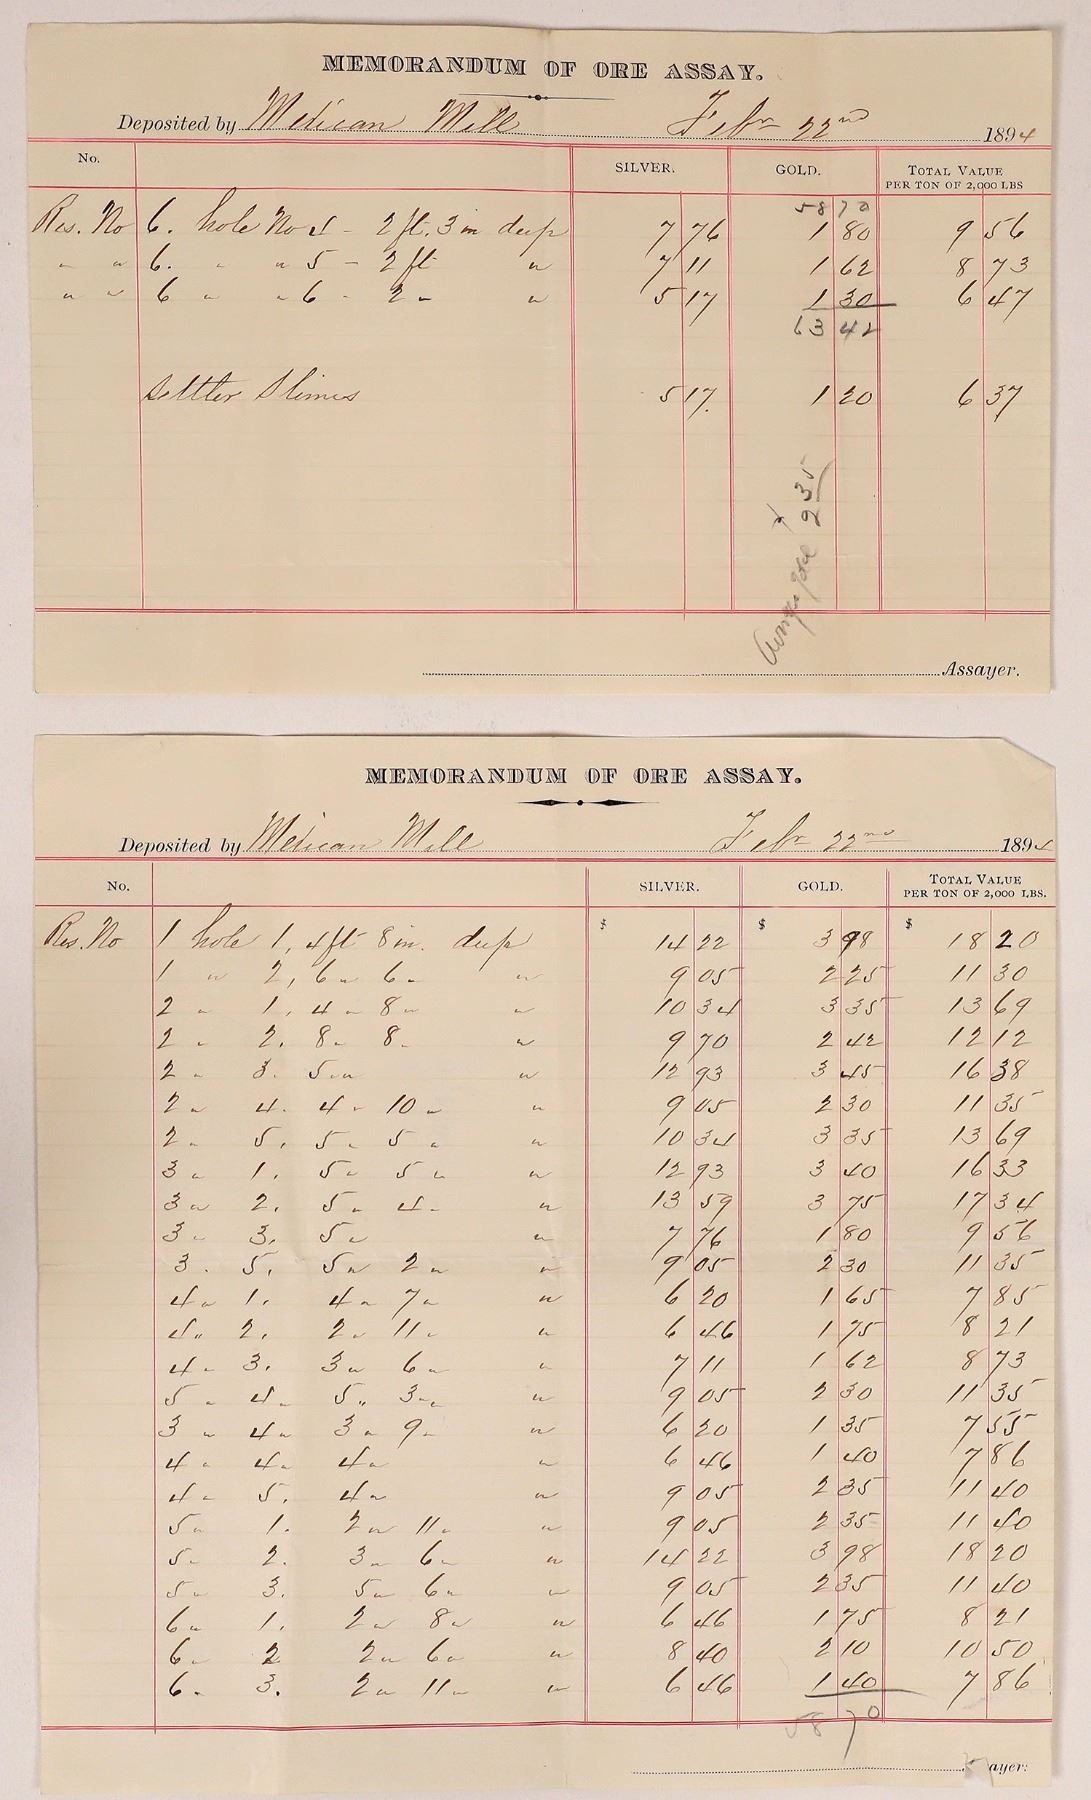 MEMORANDUM OF ORE ASSAY.
Deposited by Mexican Mill Febr 22nd 1894
No. SILVER. GOLD. TOTAL VALUE PER TON OF 2,000 LBS
58 70
Res. No 6. hole No 4 - 2 ft. 3 in deep 7 76 1 80 9 56
" " 6. " " 5 - 2 ft " 7 11 1 62 8 73
" " 6 " " 6 - 2 " " 5 17 1 30 6 47
63 42
Settler Slimes 5 17. 1 20 6 37
Average gold $ 2 35
Assayer.
MEMORANDUM OF ORE ASSAY.
Deposited by Mexican Mill Febr 22nd 1894
No. SILVER. GOLD. TOTAL VALUE PER TON OF 2,000 LBS.
$ $ $
Res. No 1 hole 1, 4 ft 8 in. deep 14 22 3 98 18 20
1 " 2, 6 " 6 " " 9 05 2 25 11 30
2 " 1, 4 " 8 " " 10 34 3 35 13 69
2 " 2. 8 " 8 " " 9 70 2 42 12 12
2 " 3. 5 " " 12 93 3 45 16 38
2 " 4. 4 " 10 " " 9 05 2 30 11 35
2 " 5. 5 " 5 " " 10 34 3 35 13 69
3 " 1. 5 " 5 " " 12 93 3 40 16 33
3 " 2. 5 " 4 " " 13 59 3 75 17 34
3 " 3. 5 " " 7 76 1 80 9 56
3 . 5. 5 " 2 " " 9 05 2 30 11 35
4 " 1. 4 " 7 " " 6 20 1 65 7 85
4 " 2. 2 " 11 " " 6 46 1 75 8 21
4 " 3. 3 " 6 " " 7 11 1 62 8 73
5 " 4 " 5 " 3 " " 9 05 2 30 11 35
3 " 4 " 3 " 9 " " 6 20 1 35 7 55
4 " 4 " 4 " " 6 46 1 40 7 86
4 " 5. 4 " " 9 05 2 35 11 40
5 " 1. 2 " 11 " " 9 05 2 35 11 40
5 " 2. 3 " 6 " " 14 22 3 98 18 20
5 " 3. 5 " 6 " " 9 05 2 35 11 40
6 " 1. 2 " 8 " " 6 46 1 75 8 21
6 " 2 2 " 6 " " 8 40 2 10 10 50
6 " 3. 2 " 11 " " 6 46 1 40 7 86
58 70
ayer.